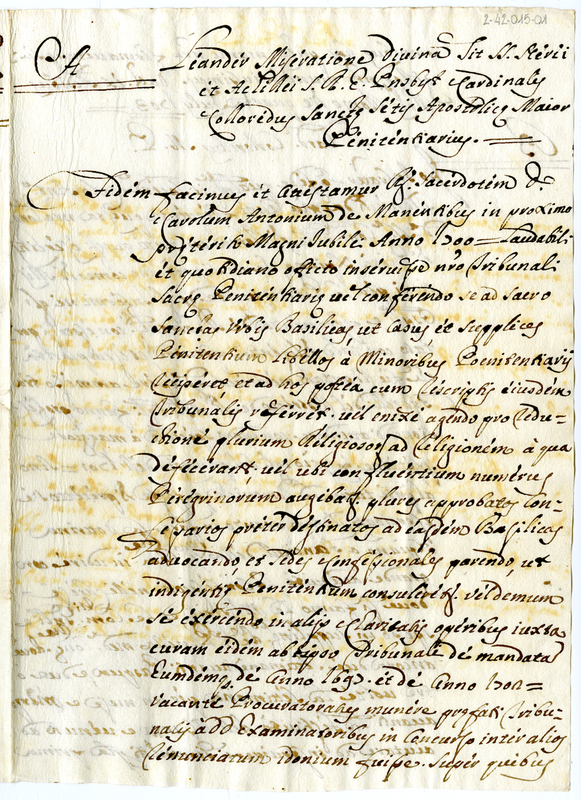 2-42-015-01
A
Leander Miseratione Divina Tit SS. Nerei
et Achillei S. R. E. Presbyt Cardinalis
Colloredus Sanctę Sedis Apostolicę Maior
Pęnitentiarius.
Fidem facimus et attestamur Rd. Sacerdotem D.
Carolum Antonium de Manentibus in proximo
pręterito Magni Jubilei Anno 1700 = Laudabili
et quotidiano officio inseruisse nro Tribunali
Sacrę Penitentiarię vel conferendo se ad Sacro
Sanctas Urbis Basilicas, ut Casus et Supplices
Pęnitentium libellos à Minoribus Poenitentiarijs
reciperet et ad hos postea cum rescriptis eiusdem
Tribunalis referret. vel enixe agendo pro redu-
ctione plurium Religiosor. ad Religionem à qua
defecerant vel ubi confluentium numerus
Peregrinorum augebat. plures approbatos Con-
fessarios pręter destinatos ad easdem Basilicas
advocando et sedes confessionales parando, ut
indigentię Penitentium consuleret. vel demum
se exercendo in alijs Charitatis operibus iuxta
curam eidem ab ipso Tribunale demandata
Eumdemq. de Anno 1697. et de Anno 1702 =
vacante Procuratoratus munere pręfati Tribu-
nalis àdd Examinatoribus in Concurso inter alios
renunciatum idonium fuisse. Super quibus